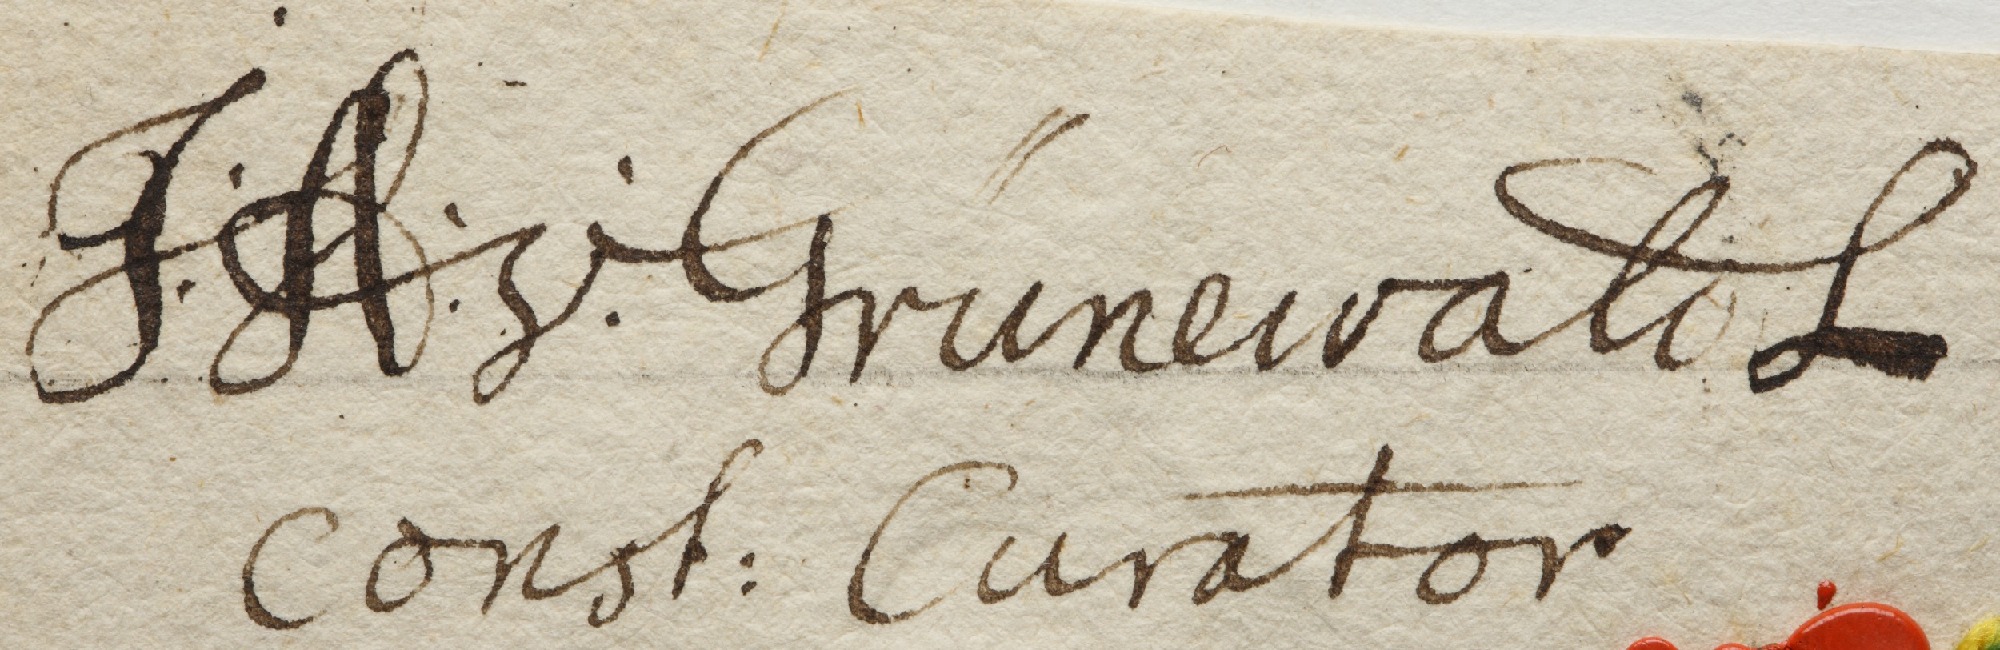 J. A. v. Grünewald L
const: Curator